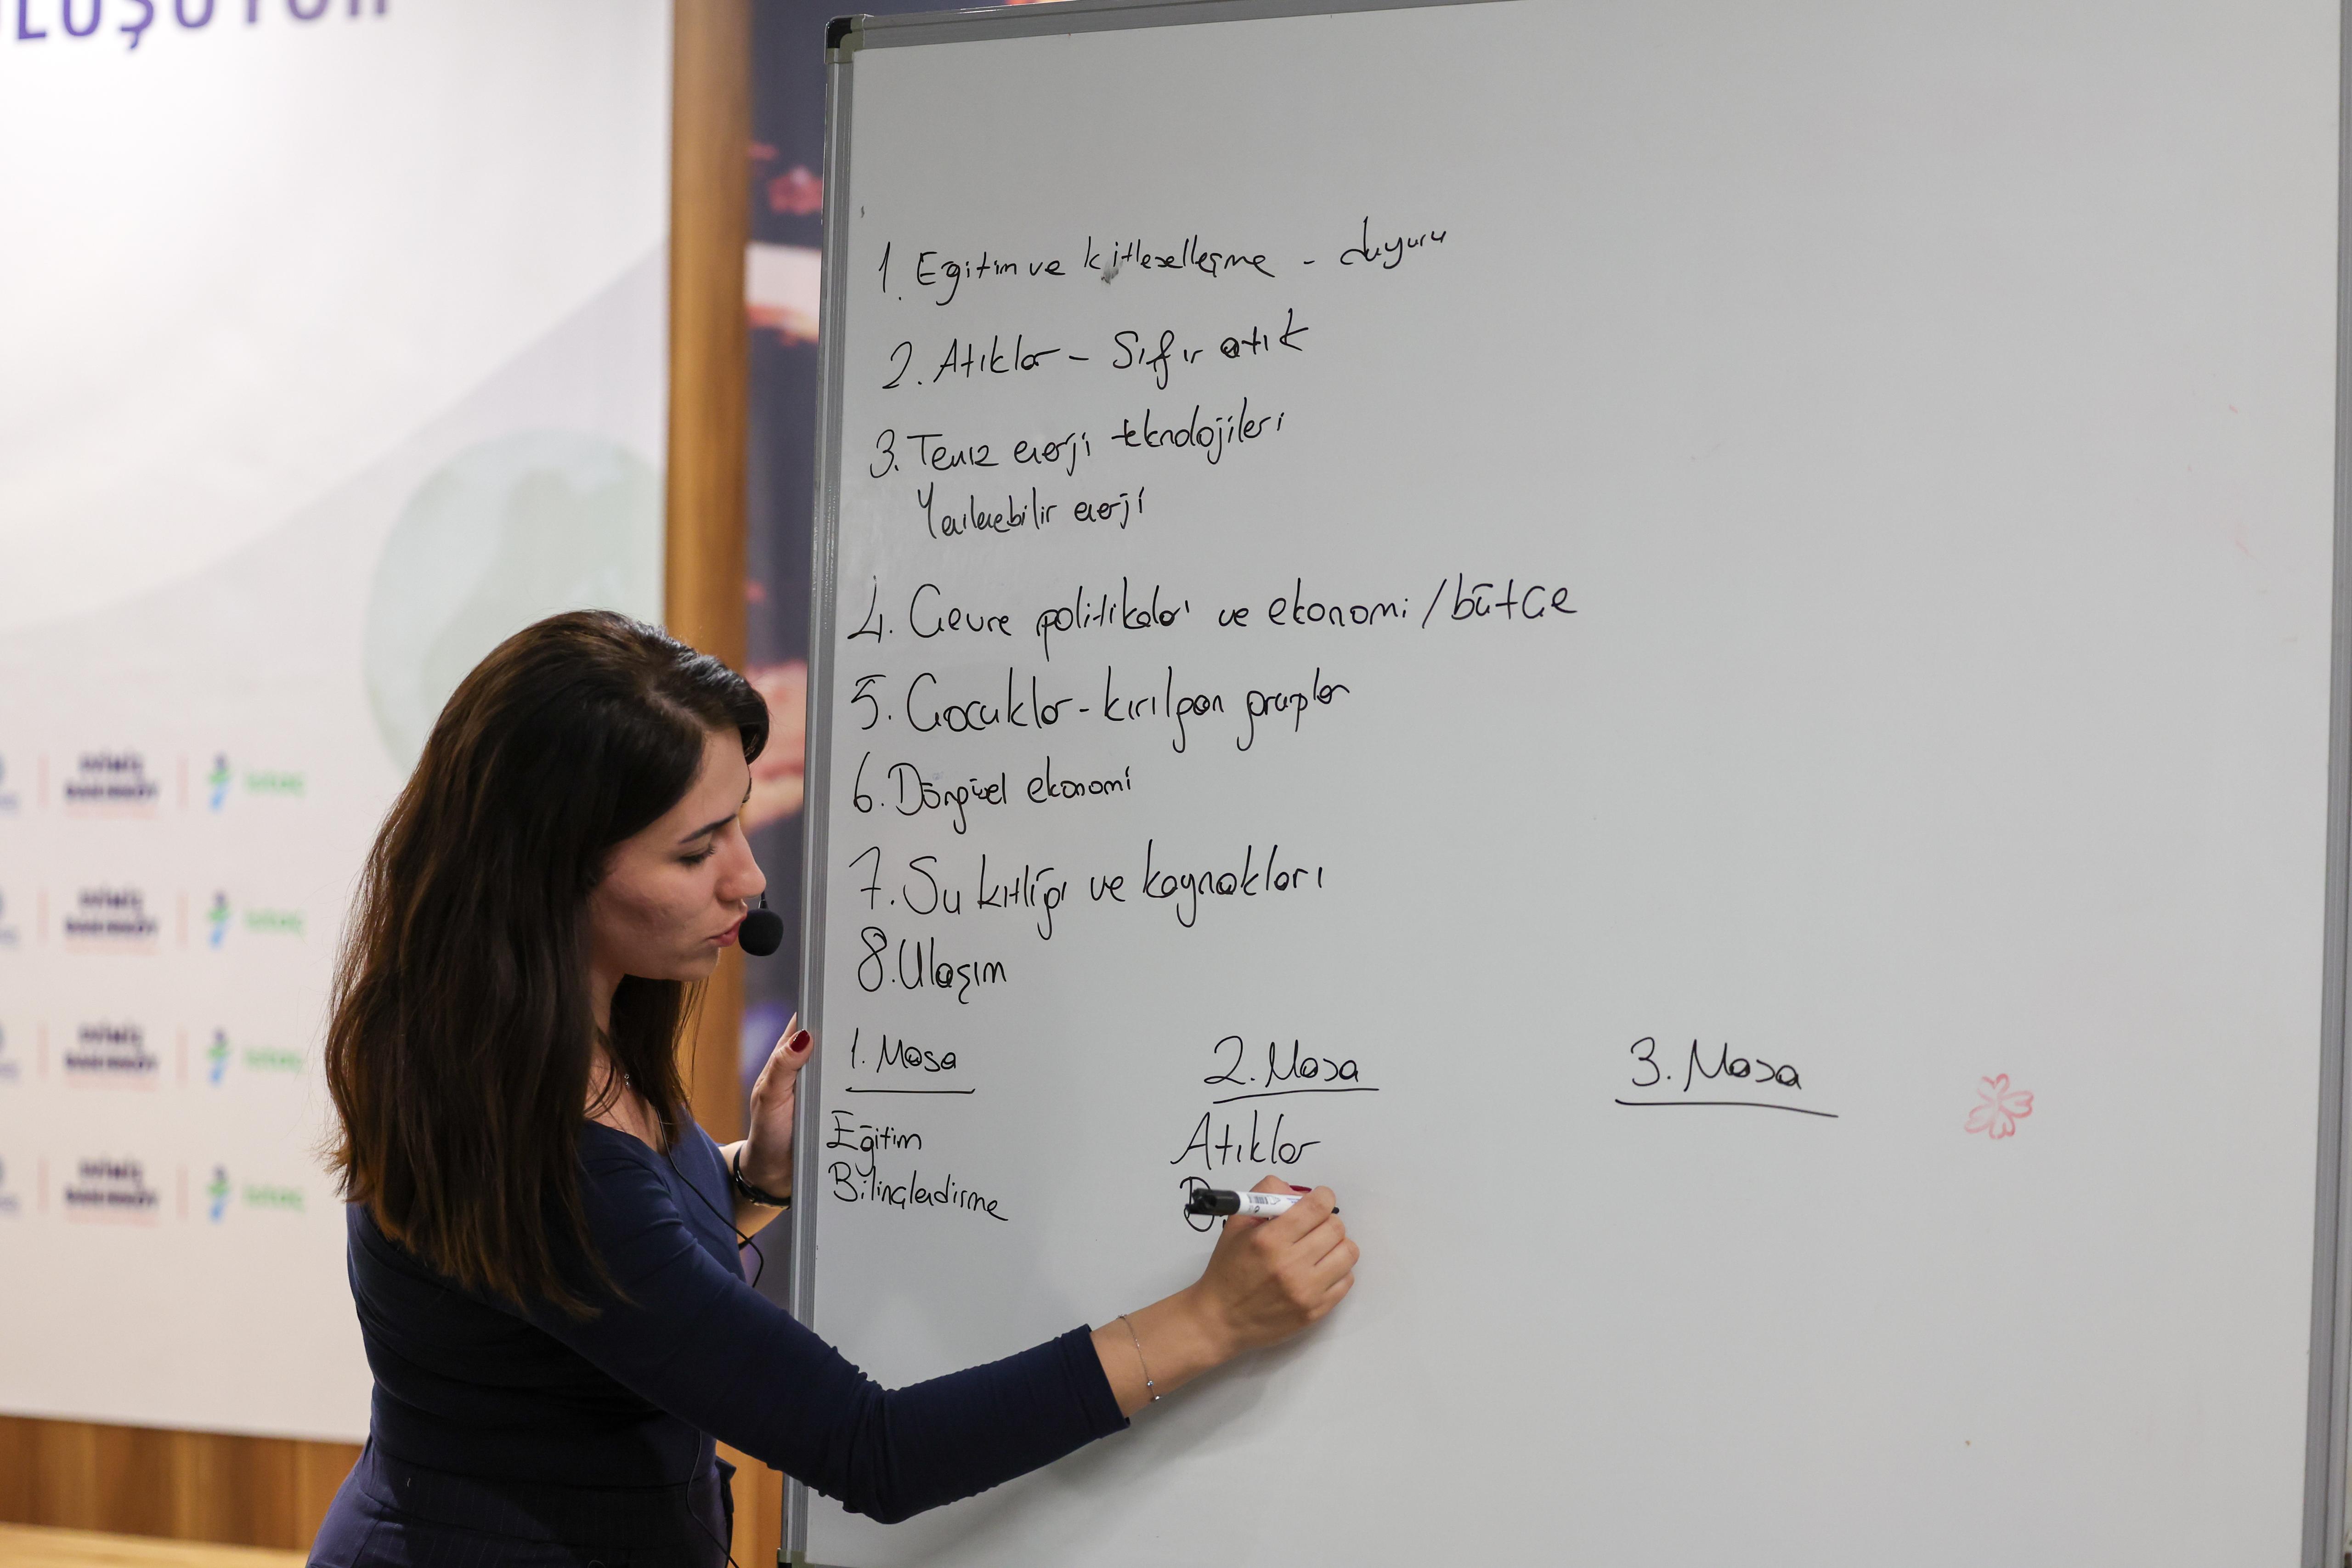 LUŞUYOR
1. Eğitim ve kitleselleşme - duyuru
2. Atıklar - Sıfır atık
3. Temiz enerji teknolojileri
Yenilenebilir enerji
4. Çevre politikaları ve ekonomi / bütçe
5. Çocuklar - kırılgan gruplar
6. Döngüsel ekonomi
7. Su kıtlığı ve kaynakları
8. Ulaşım
1. Masa 2. Masa 3. Masa
Eğitim Atıklar
Bilinçlendirme D